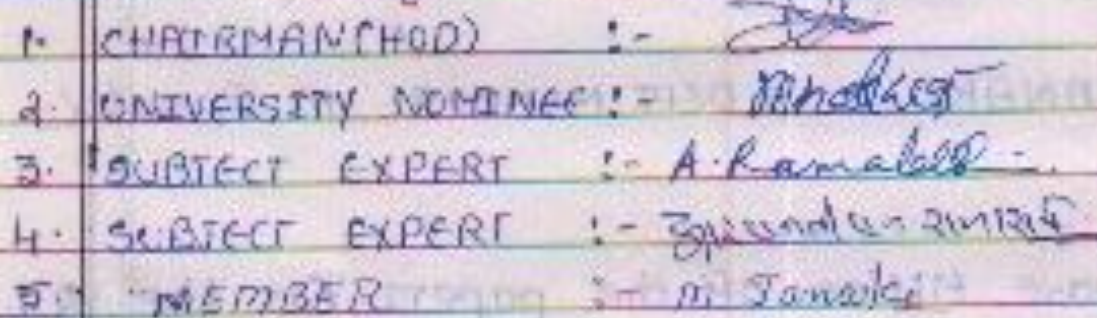 1. CHAIRMAN (HOD) :-
2. UNIVERSITY NOMINEE :-
3. SUBJECT EXPERT :- A. Ramalal
4. SUBJECT EXPERT :-
5. MEMBER :- M. Janaki